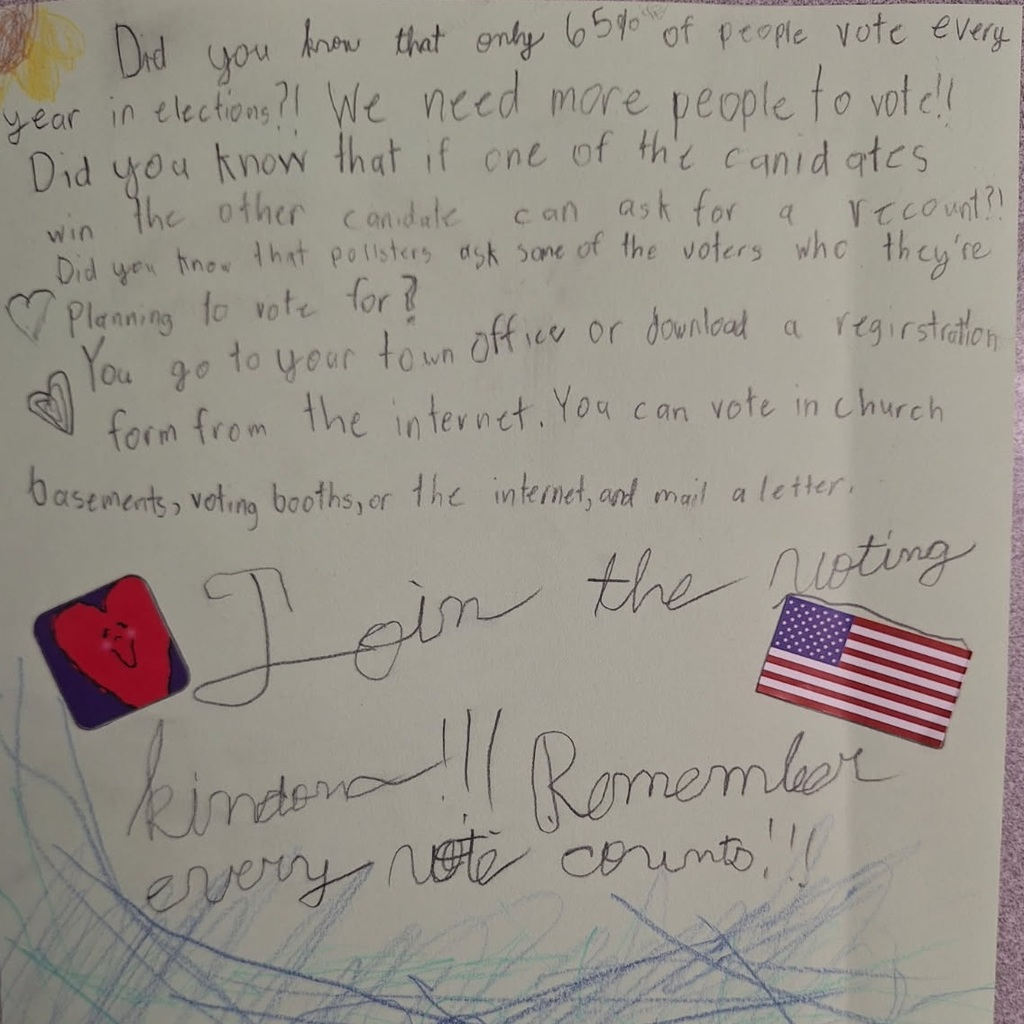 Did you know that only 65% of people vote every
year in elections?! We need more people to vote!!
Did you know that if one of the canidates
win the other canidate can ask for a recount?!
Did you know that pollsters ask some of the voters who they're
Planning to vote for?
You go to your town office or download a regirstration
form from the internet. You can vote in church
basements, voting booths, or the internet, and mail a letter.
Join the voting
kindom!!! Remember
every vote counts!!!